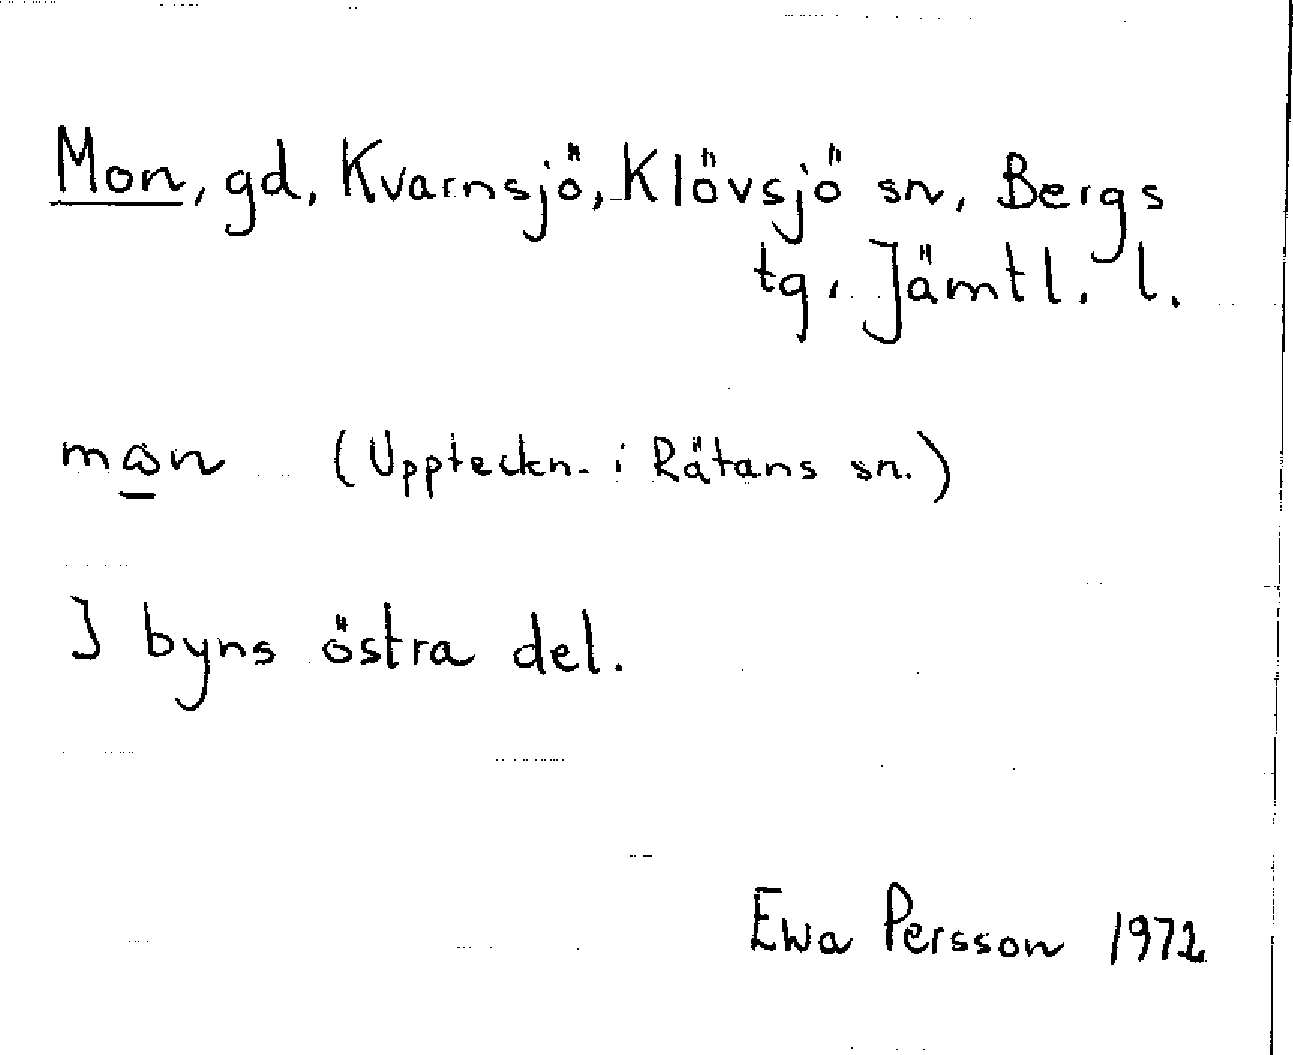 Mon, gd, Kvarnsjö, Klövsjö sn, Bergs
tg, Jämtl. l.
(Uppteckn. i Rätans sn.)
I byns östra del.
Ewa Persson 1972